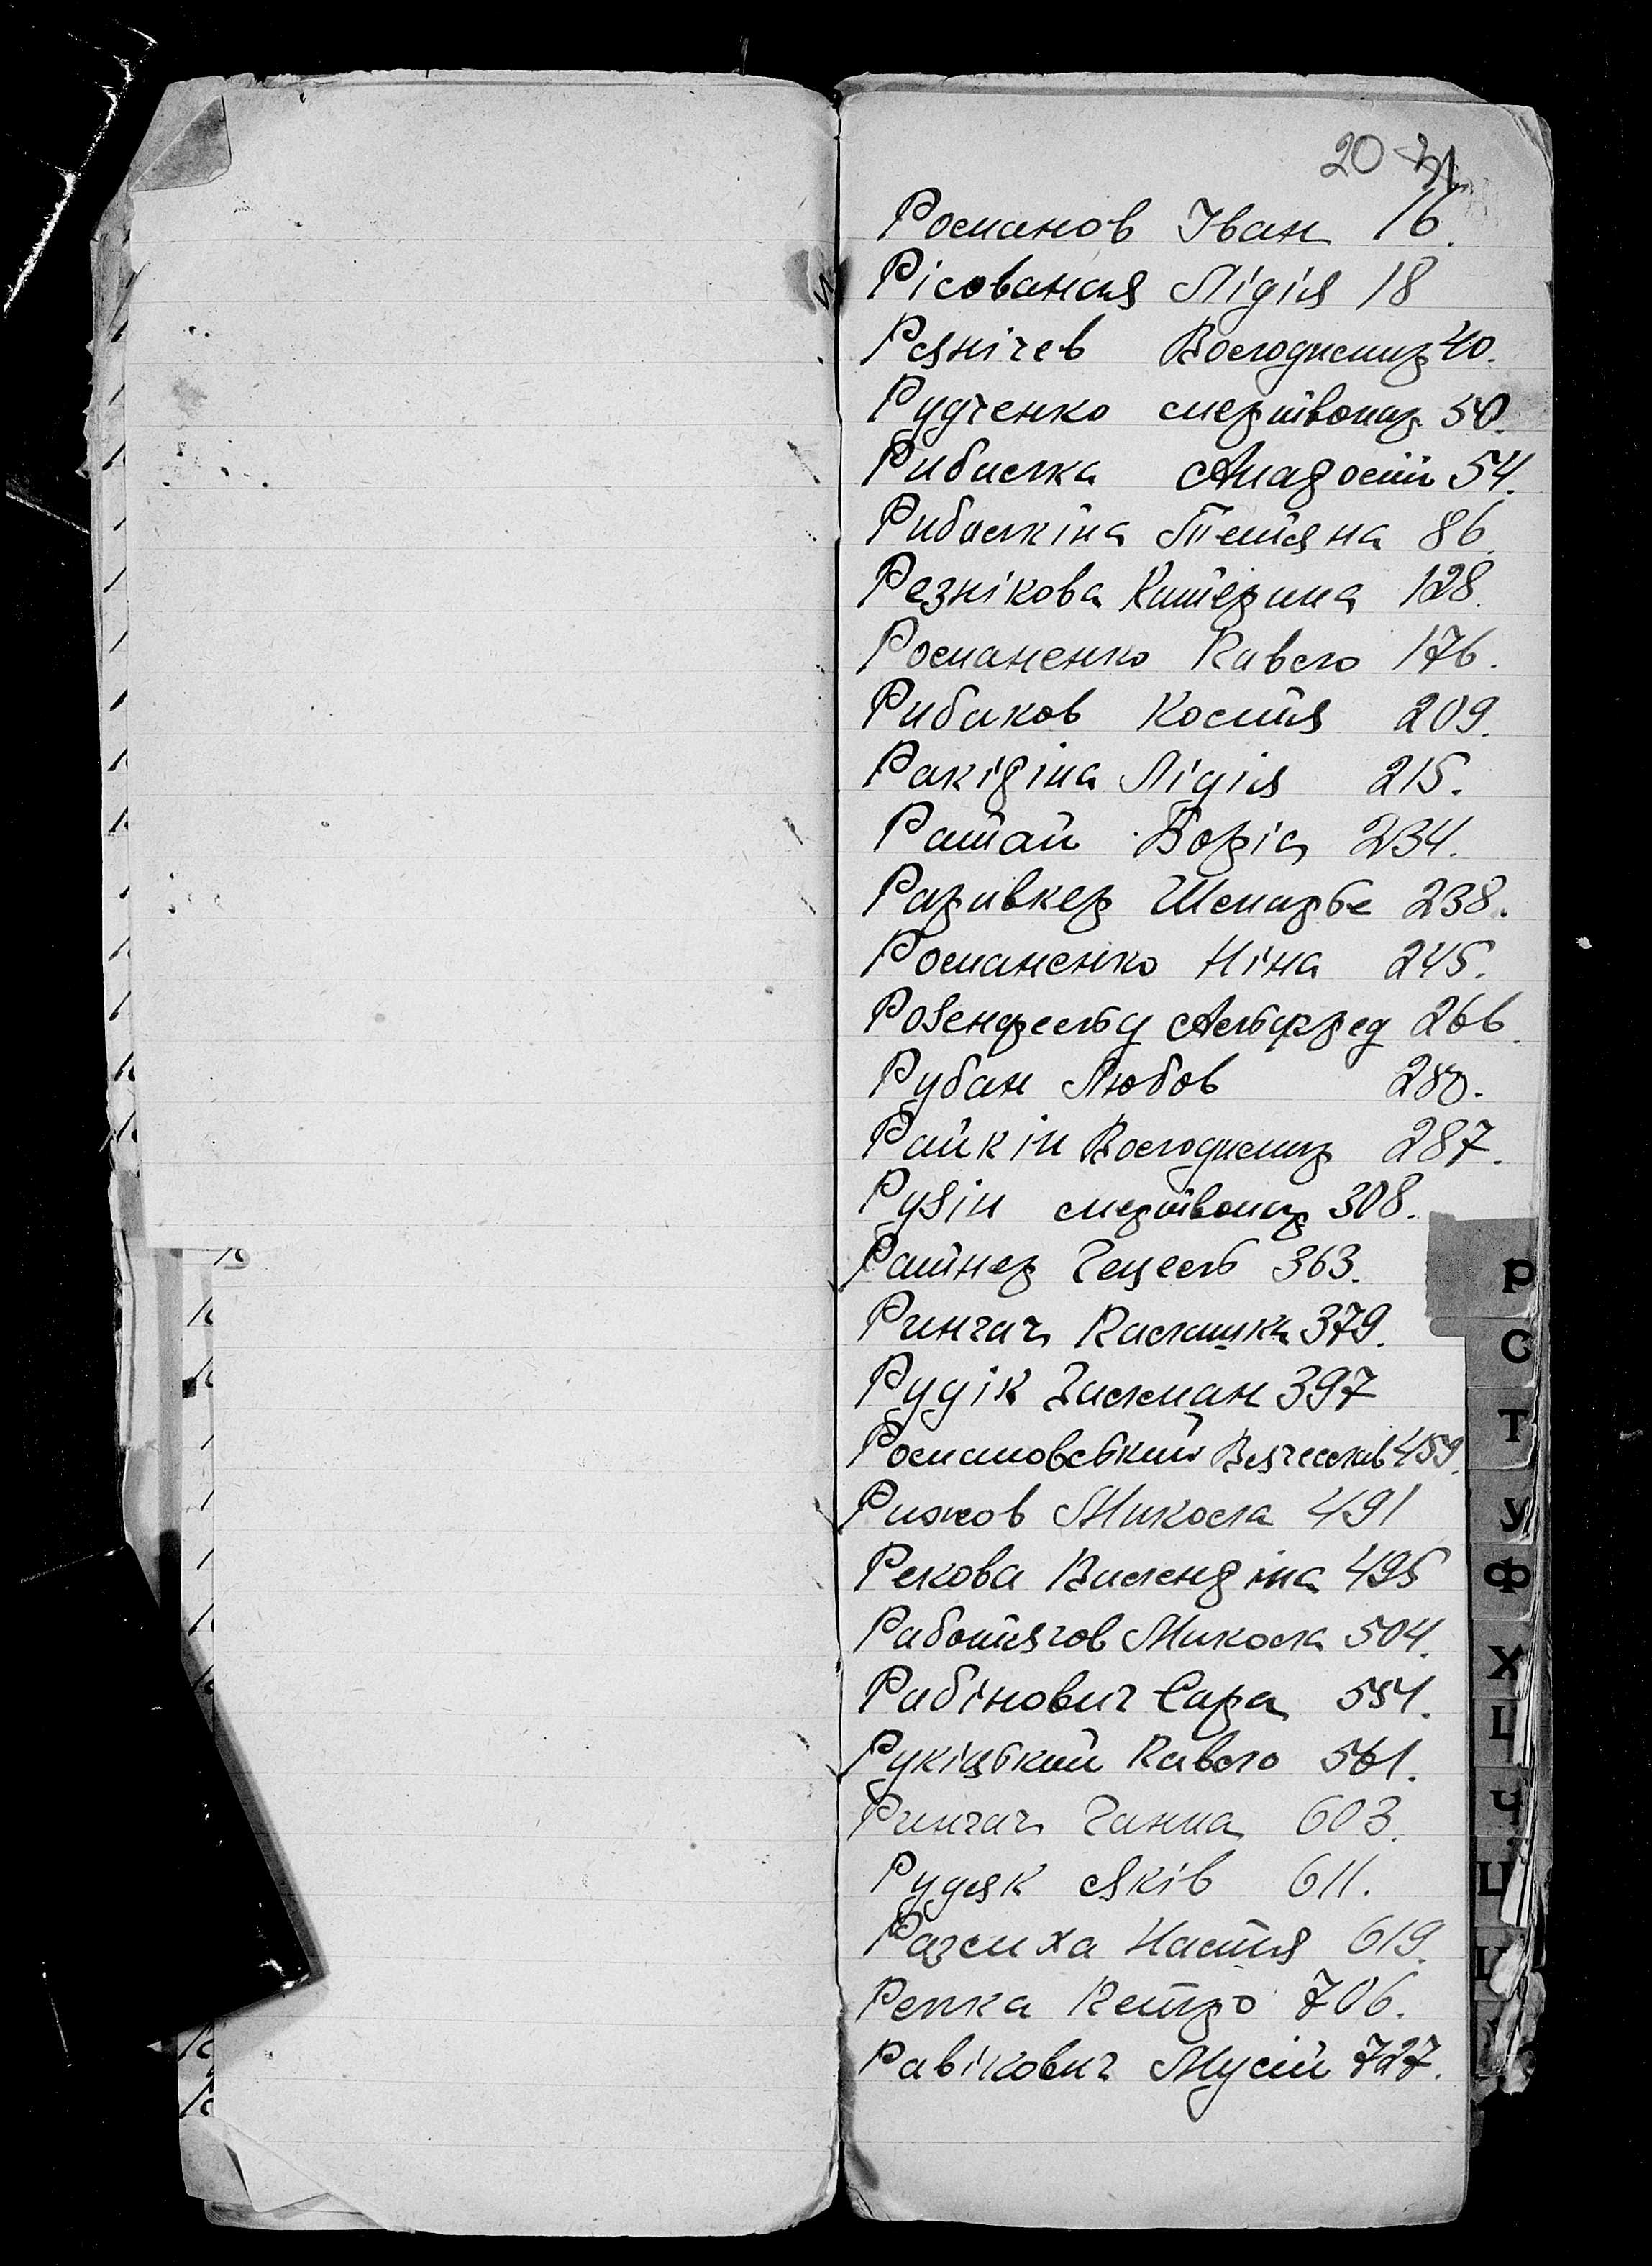 20
Романов Іван 16.
Рісованая Лідія 18
Рянічев Володимир 40.
Рудченко мертвонар. 50.
Рибалка Анатолій 54.
Рибалкіна Тетяна 86.
Резнікова Катерина 128.
Романенко Павло 176.
Рибаков Костя 209.
Ракізіна Лідія 215.
Ратай Боріс 234.
Раривкер 238.
Романенко Ніна 245.
Розенфельд Альфред 266.
Рубан Любов 280.
Райкін Володимир 287.
Рузін мертвонар 308.
Райнер Гецель 363.
Рингач Палашка 379.
Рудік Зисман 397
Романовський Вячеслав 459.
Рижов Микола 491
Рекова Валендіна 495
Работягов Микола 504.
Рабінович Сара 554.
Рукіцький Павло 561.
Рингач Ганна 603.
Рудяк Яків 611.
Разсиха Настя 619.
Репка Петро 706.
Равікович Мусій 727.
Р
С
Т
У
Ф
Х
Ч